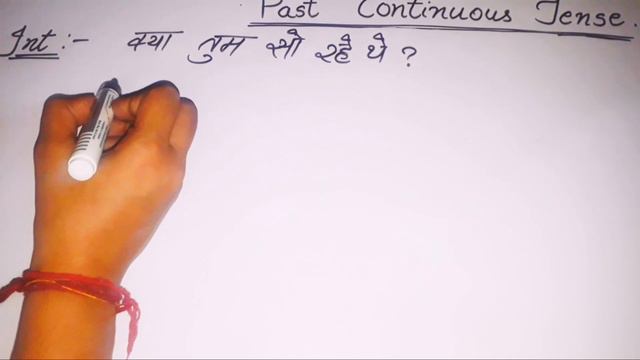 Past Continuous Tense.
Int :- क्या तुम सो रहे थे ?